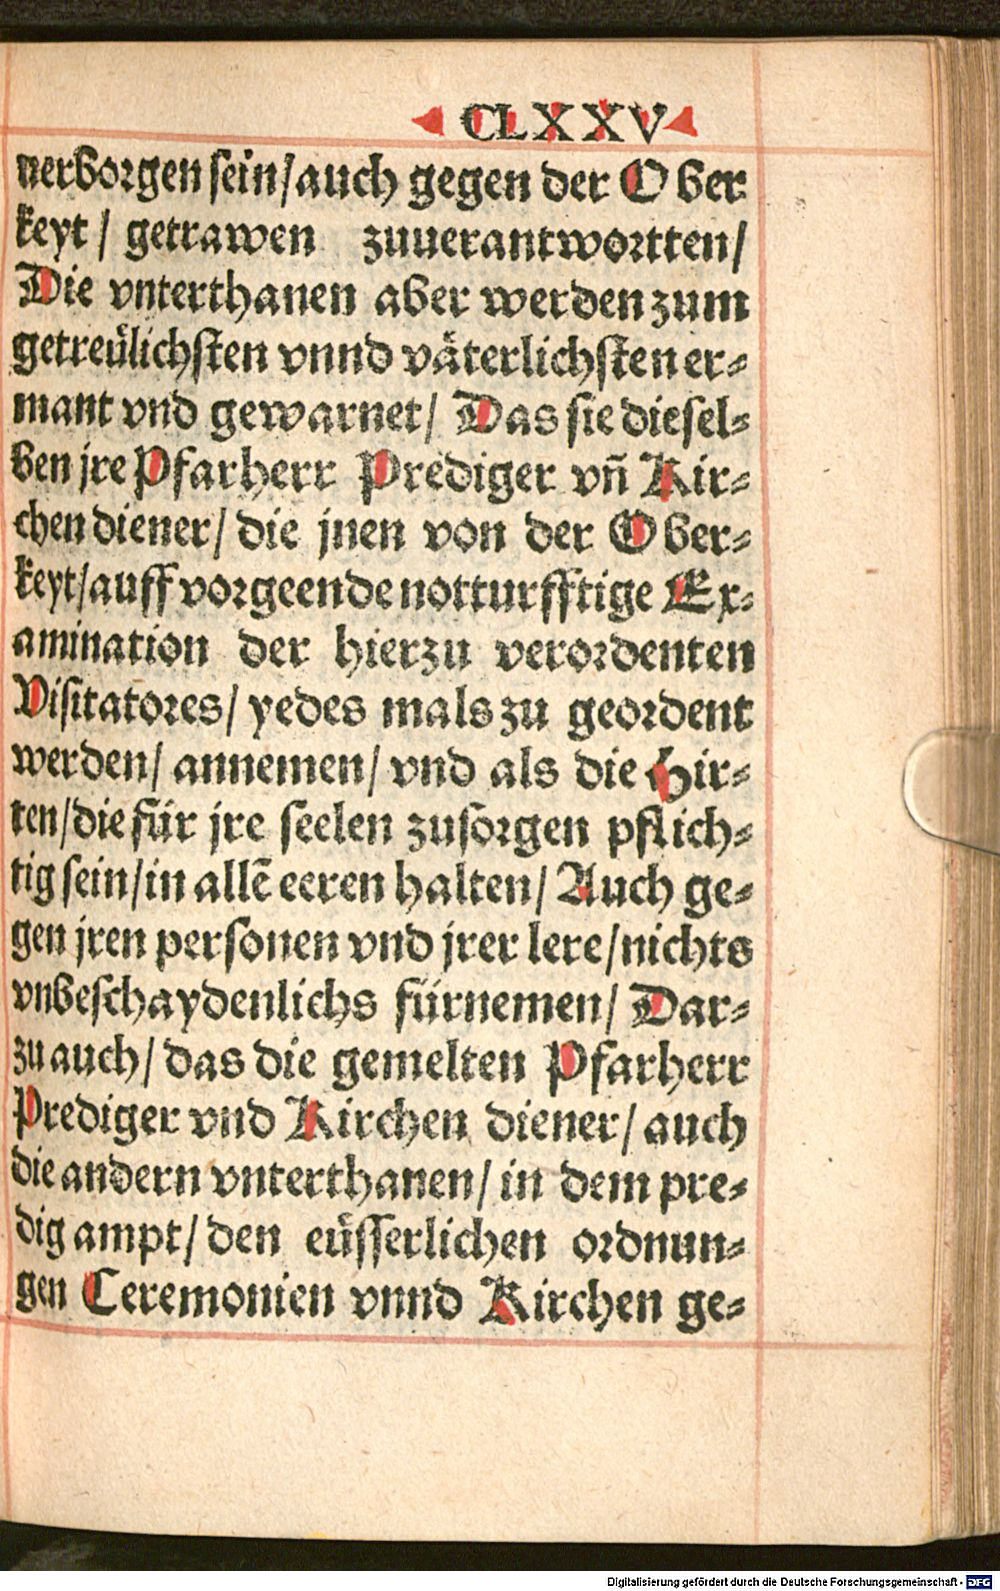 CLXXV
uerborgen sein/auch gegen der Ober
keyt / getrawen zuuerantwortten/
Die vnterthanen aber werden zum
getreülichsten vnnd väterlichsten er-
mant vnd gewarnet/ Das sie diesel-
ben jre Pfarherr Prediger vn̄ Kir-
chen diener/ die jnen von der Ober-
keyt/auff vorgeende notturfftige Ex-
amination der hierzu verordenten
Visitatores/ yedes mals zu geordent
werden/ annemen/ vnd als die Hir-
ten/die für jre seelen zusorgen pflich-
tig sein/in allē eeren halten/ Auch ge-
gen jren personen vnd jrer lere/nichts
vnbeschaydenlichs fürnemen/ Dar-
zu auch/ das die gemelten Pfarherr
Prediger vnd Kirchen diener/ auch
die andern vnterthanen/ in dem pre-
dig ampt/ den eüsserlichen ordnun-
gen Ceremonien vnnd Kirchen ge-
Digitalisierung gefördert durch die Deutsche Forschungsgemeinschaft - DFG